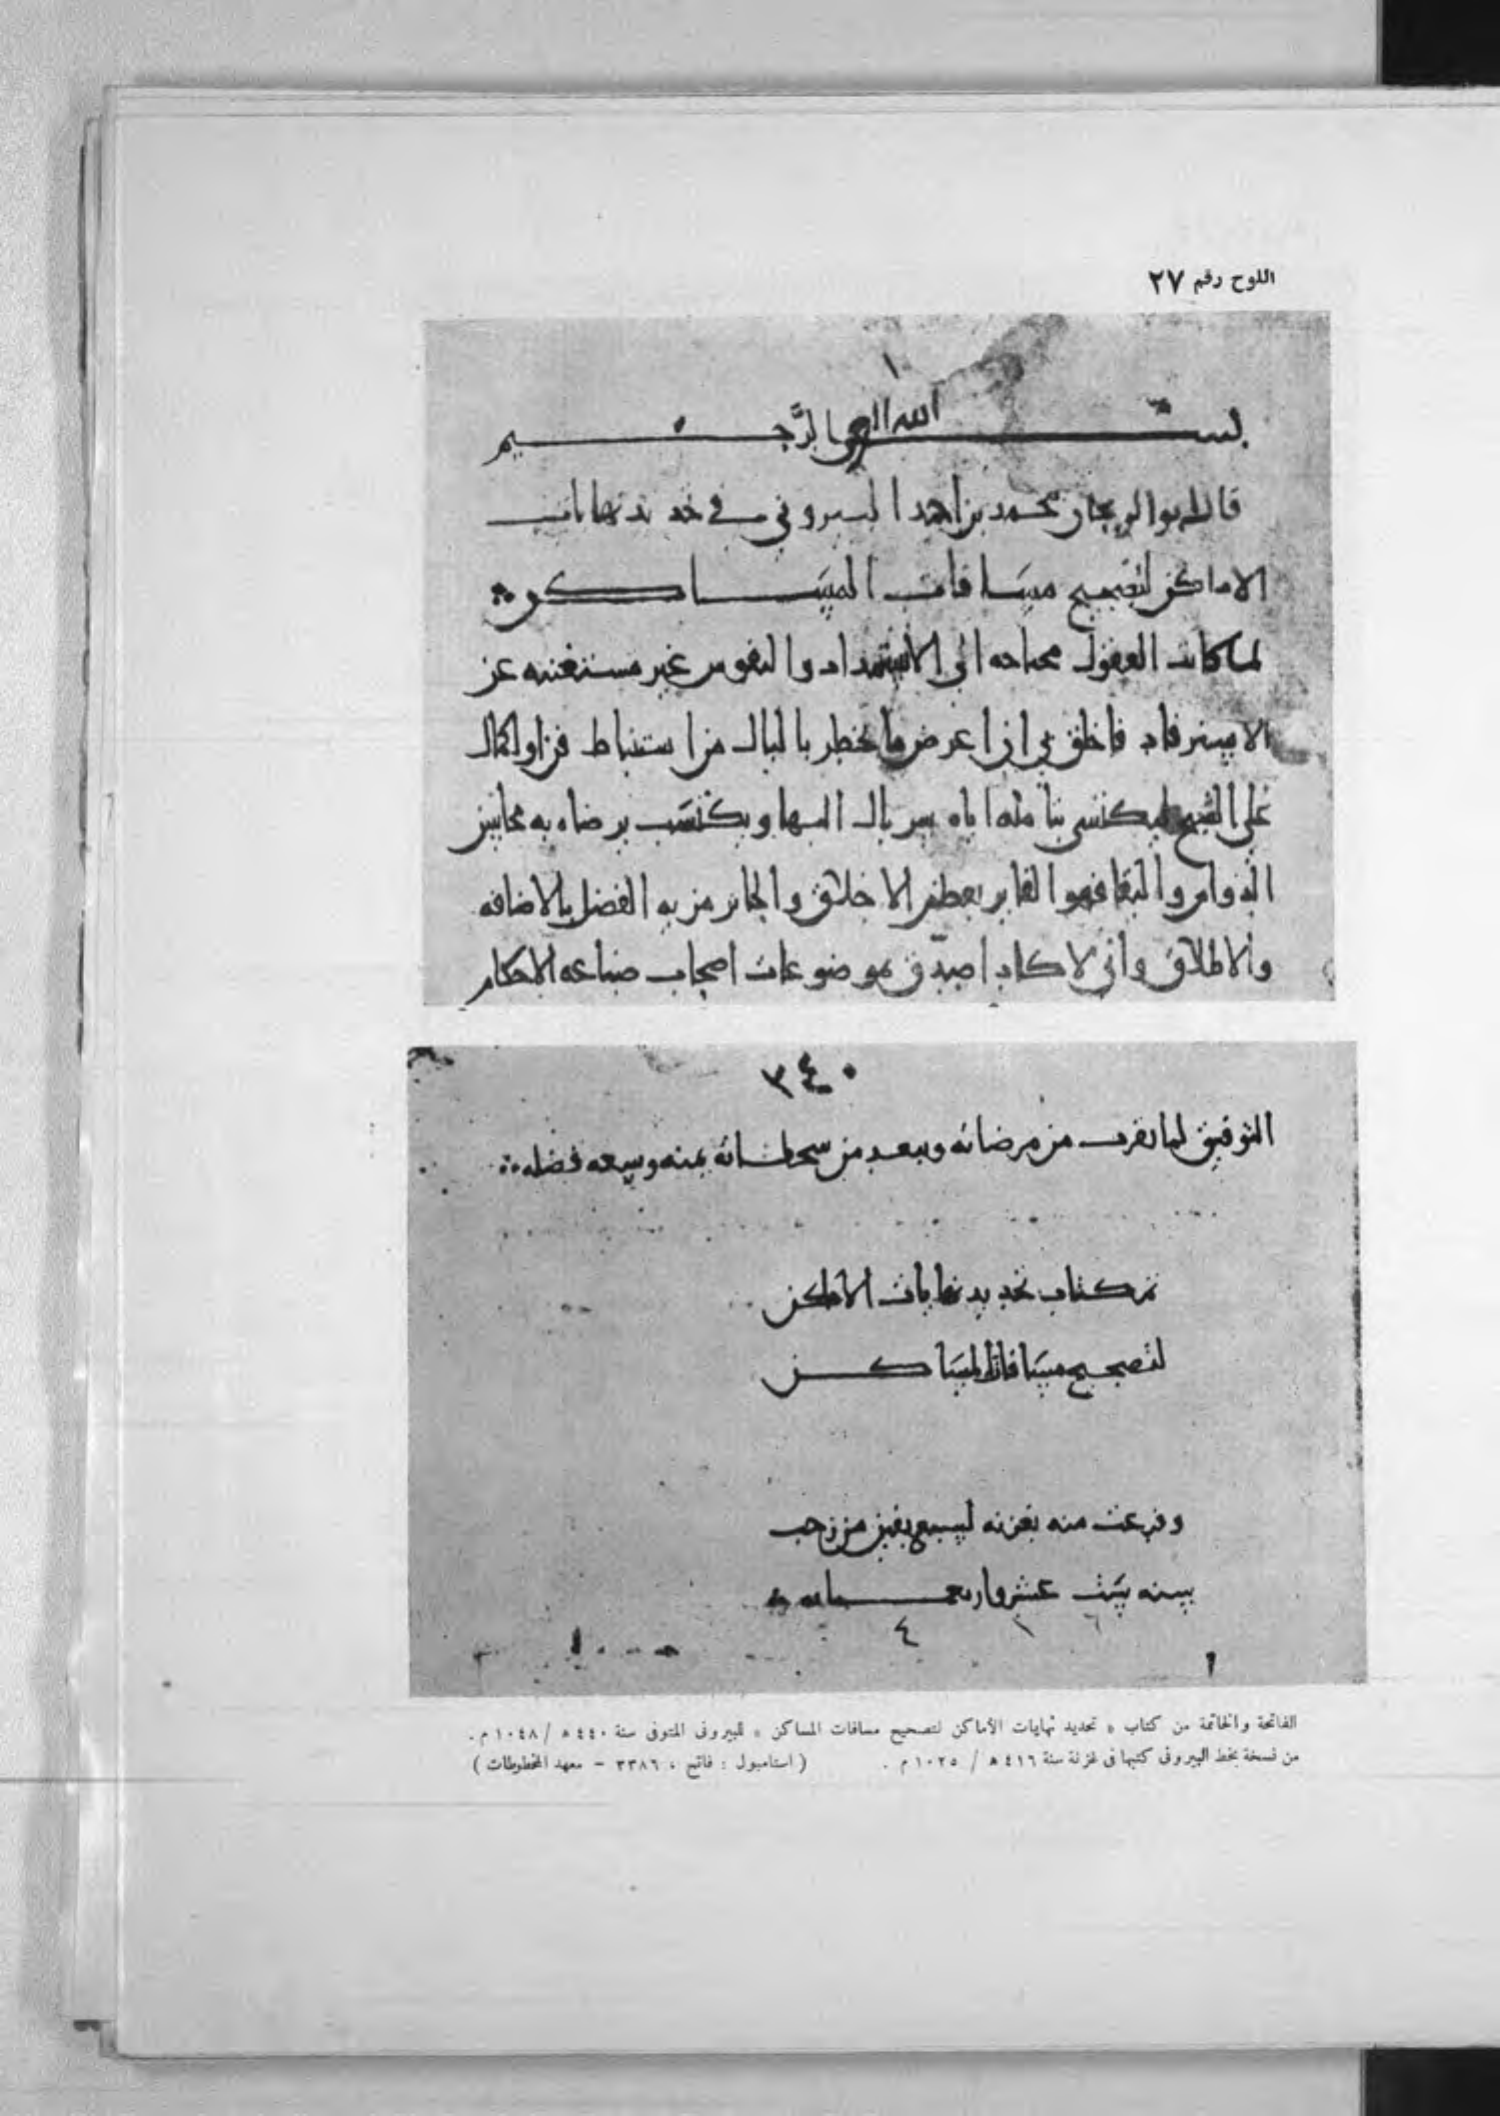 اللوح رقم ٢٧
١
بسم الله الرحمن الرحيم
قال ابو الريحان محمد بن احمد البيروني في تحديد نهايات
الاماكن لتصحيح مسافات المساكن
لما كانت العقول محتاجه الى الاستمداد والنفوس غير مستغنيه عن
الاسترفاد فاخلق بي ان اعرض ما يخطر بالبال من استنباط فن او اكمال
على الشيخ ليكتسي بتأمله اياه سربال البها ويكتسب برضاه به محاسن
الدوام والبقا فهو الفايز بعظم الاخلاق والحايز مزيه الفضل بالاضافه
والاطلاق واني لا كاد اصدق بموضوعات اصحاب صناعه الاحكام
٣٤٠
التوفيق لما يقرب من مرضاته ويبعد من سخطاته بمنه وسعه فضله
تم كتاب تحديد نهايات الاماكن
لتصحيح مسافات المساكن
وفرغت منه بغزنه لسبع بقين من رجب
سنه ست عشر واربعمايه
٤ ١ ٦
الفاتحة والخاتمة من كتاب « تحديد نهايات الأماكن لتصحيح مسافات المساكن » للبيروني المتوفى سنة ٤٤٠ ه / ١٠٤٨ م .
من نسخة بخط البيروني كتبها في غزنة سنة ٤١٦ ه / ١٠٢٥ م . ( استامبول : فاتح ، ٣٣٨٦ – معهد المخطوطات )